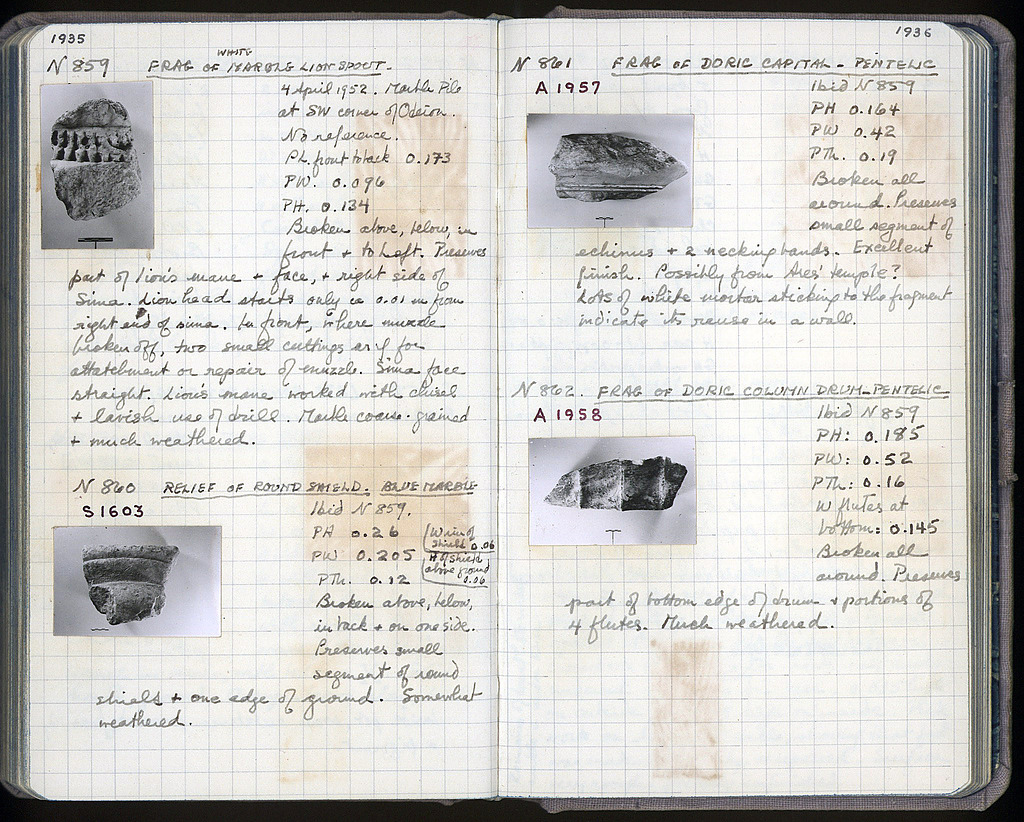 1935
N 859 FRAG OF WHITE MARBLE LION SPOUT.
4 April 1952. Marble Pile
at SW corner of Odeion.
No reference.
PL. front to back 0.173
PW. 0.096
PH. 0.134
Broken above, below, in
front + to left. Preserves
part of lion's mane + face, + right side of
sima. Lion head starts only ca 0.01 m from
right end of sima. In front, where muzzle
broken off, two small cuttings as if for
attatchment or repair of muzzle. Sima face
straight. Lion's mane worked with chisel
+ lavish use of drill. Marble coarse-grained
+ much weathered.
N 860 RELIEF OF ROUND SHIELD. BLUE MARBLE
S 1603
Ibid N 859.
PH 0.26
PW 0.205
PTh. 0.12
W rim of
shield 0.06
H of shield
above ground
0.06
Broken above, below,
in back + on one side.
Preserves small
segment of round
shield + one edge of ground. Somewhat
weathered.
1936
N 861 FRAG OF DORIC CAPITAL - PENTELIC
A 1957
Ibid N 859
PH 0.164
PW 0.42
PTh. 0.19
Broken all
around. Preserves
small segment of
echinus + 2 necking bands. Excellent
finish. Possibly from Ares' temple?
Lots of white mortar sticking to the fragment
indicate its reuse in a wall.
N 862. FRAG OF DORIC COLUMN DRUM-PENTELIC
A 1958
Ibid N 859
PH: 0.185
PW: 0.52
PTh: 0.16
W flutes at
bottom: 0.145
Broken all
around. Preserves
part of bottom edge of drum + portions of
4 flutes. Much weathered.